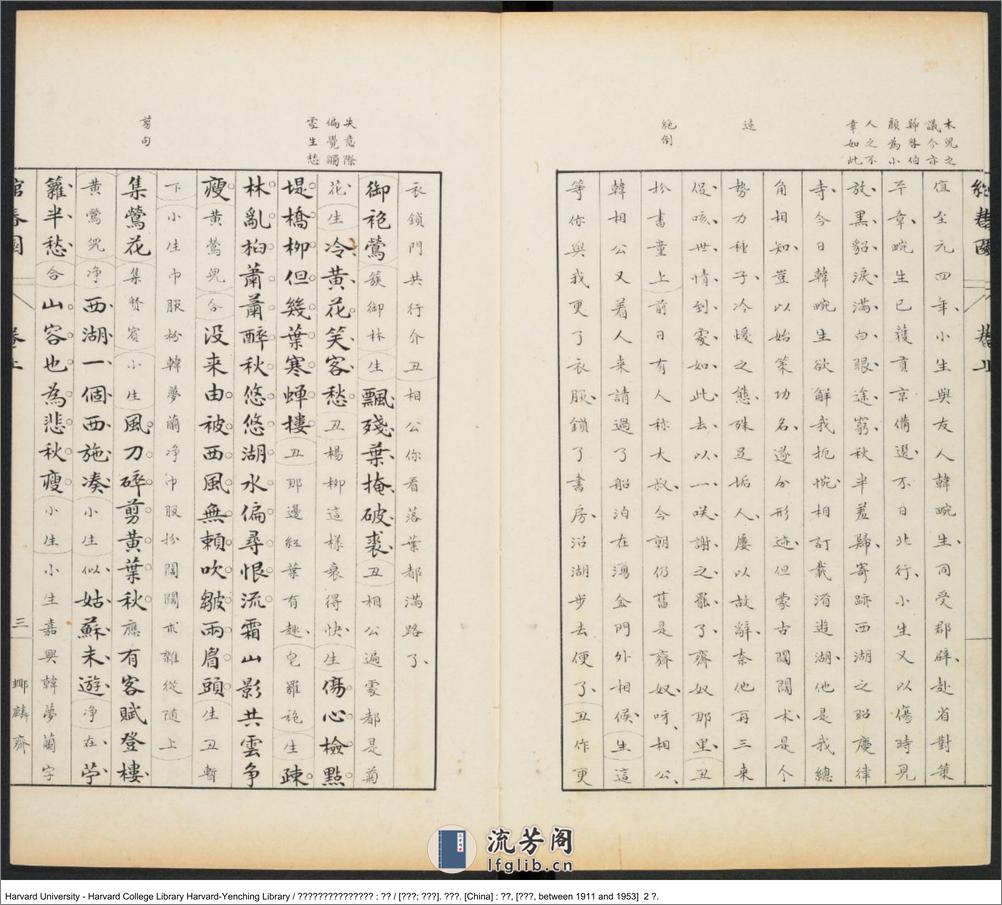 木兒之
議今亦
歸咎伯
顏為小
人之不
幸如此
這
絕倒
值至元四年、小生與友人韓畹生、同受郡辟、赴省對策
平章、畹生已護貢京備選、不日北行、小生又以傷時見
放、黑貂淚滿、白眼途窮、秋半羞歸、寄跡西湖之昭慶律
寺、今日韓畹生欲解我扼惋、相訂載酒遊湖、他是我總
角相知、豈以始策功名、遂分形迹、但蒙古闊闊朮、是个
勢力種子、冷煖之態、殊足垢人、屢以故辭、奈他再三來
促、咳、世情到處如此、去以一咲謝之罷了、齊奴那里、丑
扮書童上前日有人称大叔、今朝仍舊是齊奴、呀、相公、
韓相公又着人來請過了、船泊在湧金門外相候、生這
等你與我更了衣服、鎖了書房、沿湖步去便了、丑作更
失意際
偏覺觸
處生愁
剪句
衣鎖門共行介丑相公你看落葉都滿路了、
御袍鶯簇御林生飄殘葉、掩破裘、丑相公遍處都是菊
花、生冷黃花笑客愁、丑楊柳這樣衰得快、生傷心檢點
堤橋柳、但幾葉寒蟬樓、丑那邊紅葉有趣、皂羅袍生疎
林亂柏、蕭蕭醉秋、悠悠湖水、偏尋恨流、霜山影共雲爭
瘦、黃鶯兒合没來由、被西風無賴、吹皺兩眉頭、生丑暫
下小生巾服扮韓夢蘭淨巾服扮闊闊朮雜從随上
集鶯花集賢賓小生風刀碎剪黃葉秋、應有客賦登樓、
黃鶯兒淨西湖一個西施湊、小生似、姑蘇未遊、淨在、苧
蘿半愁、合山容也為悲秋瘦、小生小生嘉興韓夢蘭字
綰春園
卷上
三
螂麟齊
流芳阁
lfglib.cn
Harvard University - Harvard College Library Harvard-Yenching Library / ??????????????? : ?? / [???; ???]. ???. [China] : ??, [???, between 1911 and 1953]  2 ?.